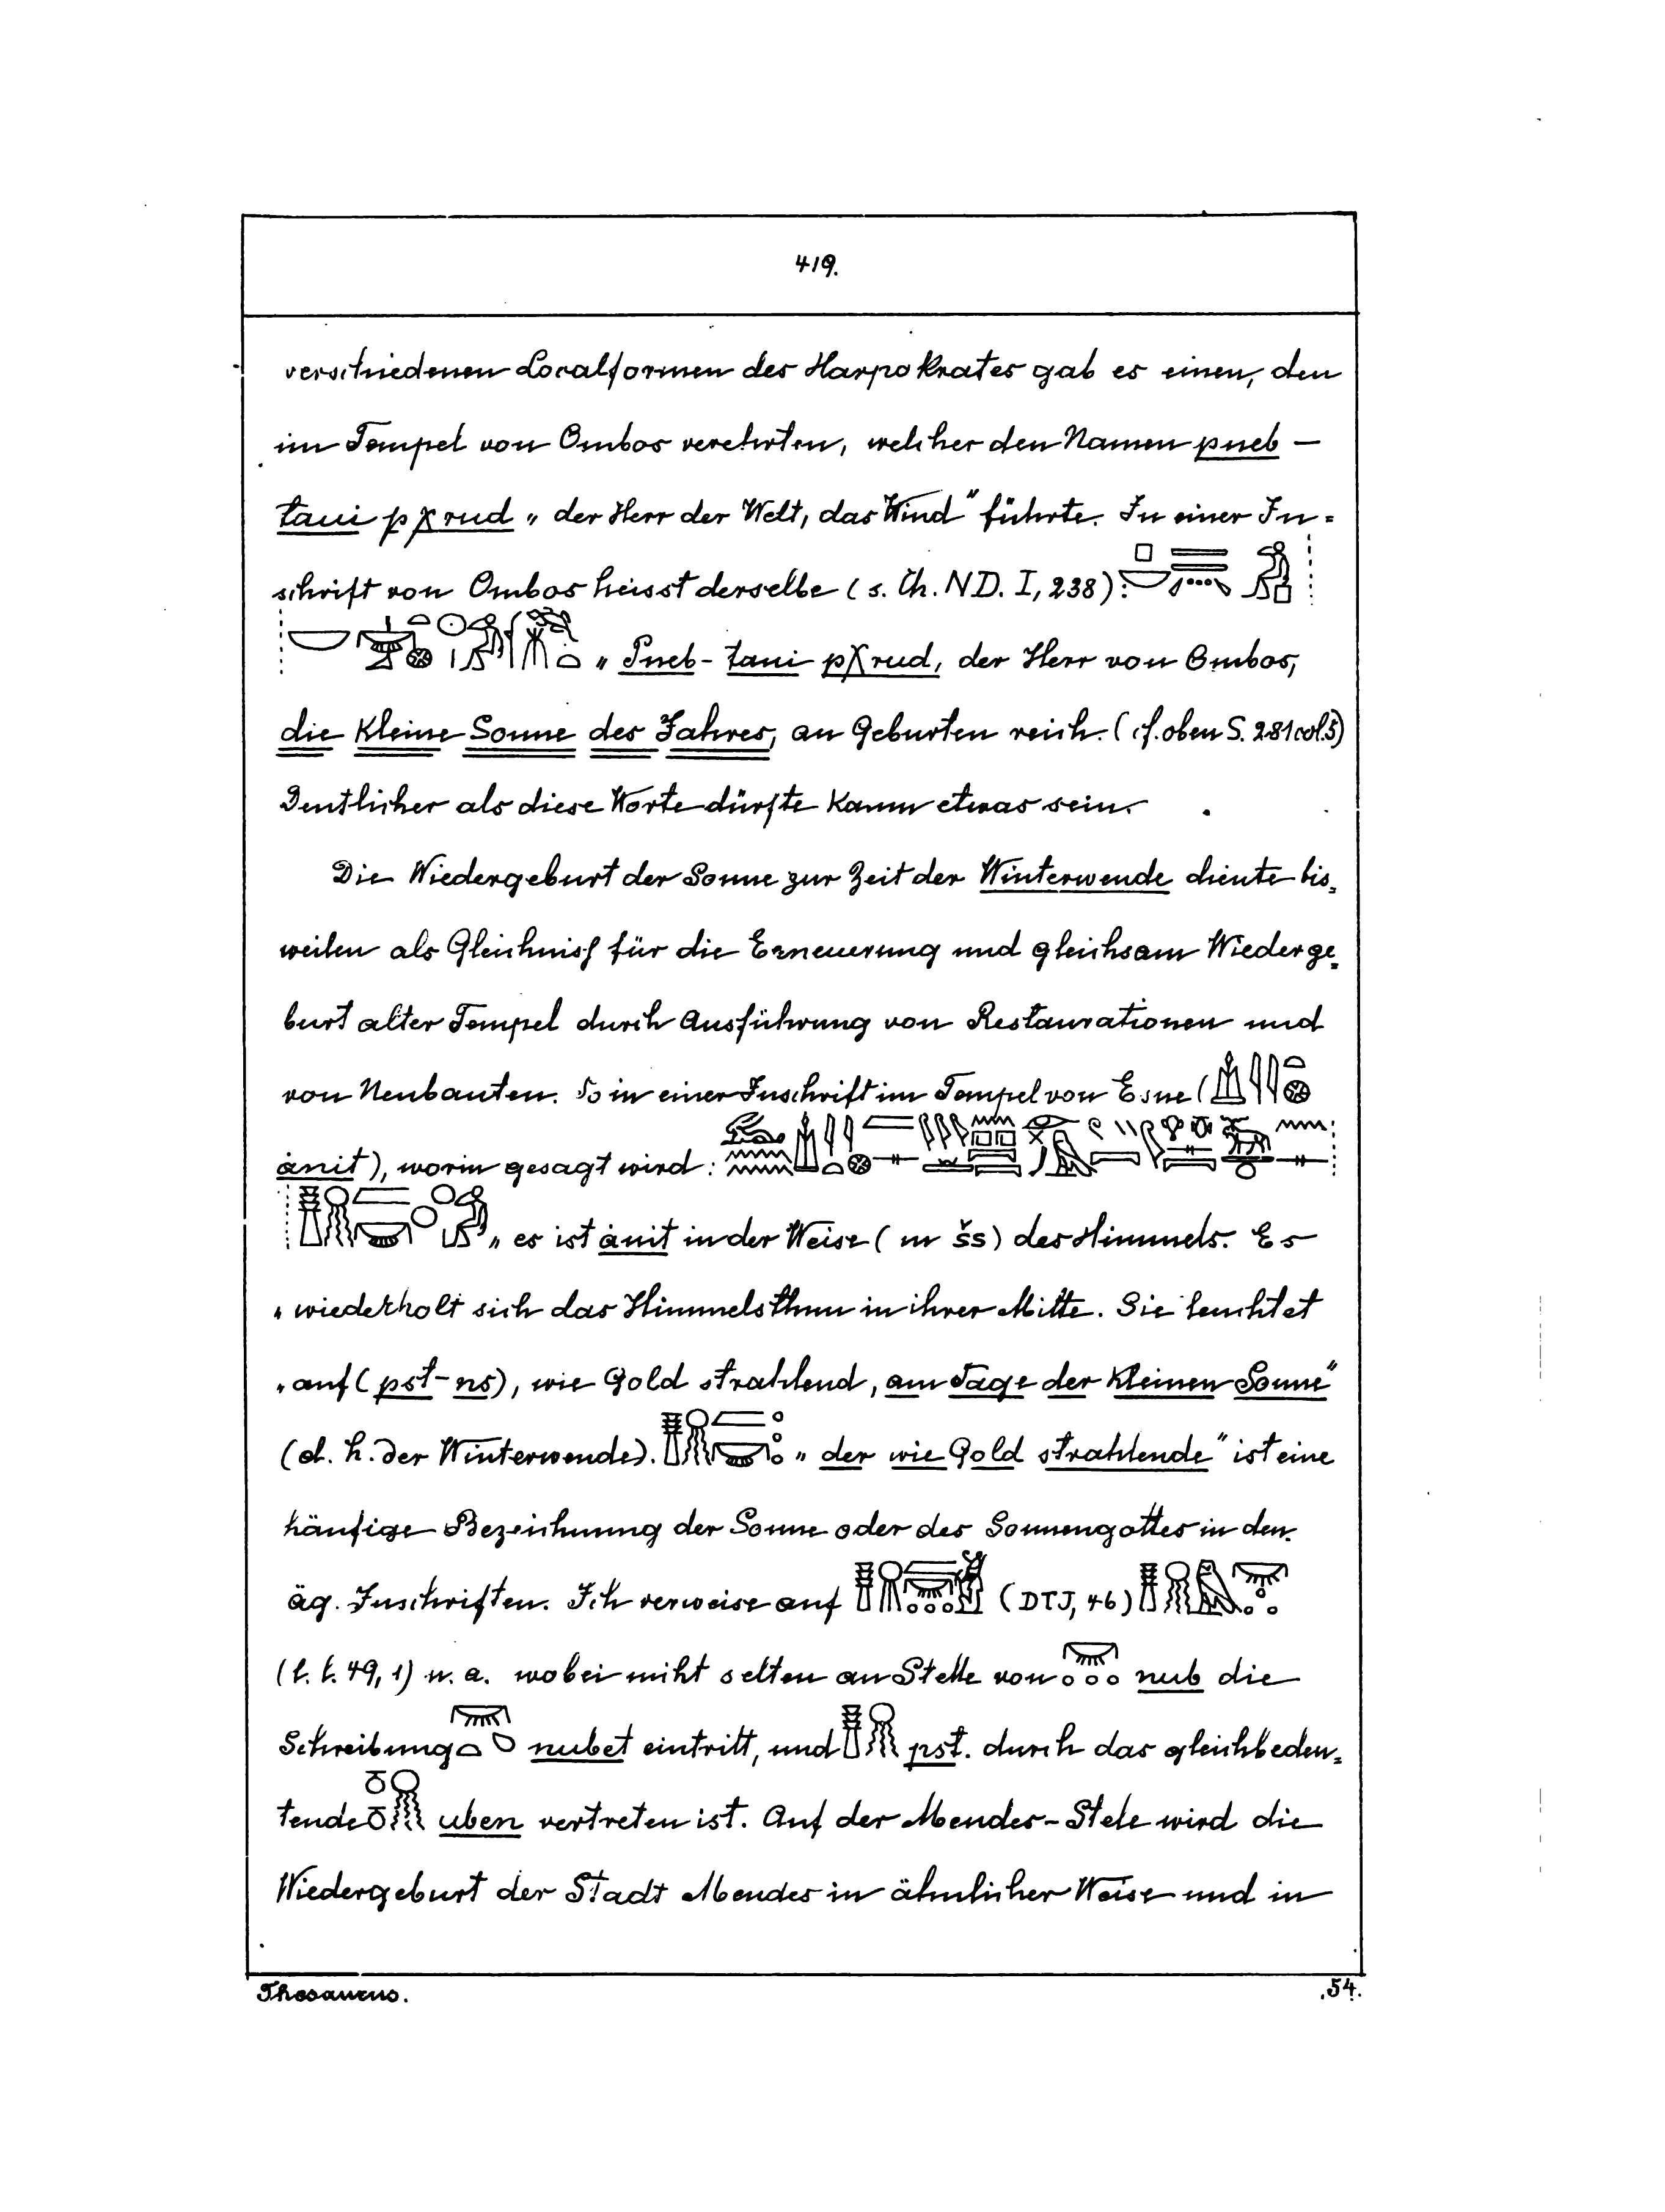 419.
verschiedenen Localformen des Harpokrates gab es einen, den
im Tempel von Ombos verehrten, welcher den Namen pneb-
taui pχrud „der Herr der Welt, das Kind" führte. In einer In=
schrift von Ombos heisst derselbe (s. Ch. ND. I, 238):
„Pneb-taui pχrud, der Herr von Ombos,
die kleine Sonne des Jahres, an Geburten reich. (cf. oben S. 281 col. 5)
Deutlicher als diese Worte dürfte kaum etwas sein.
Die Wiedergeburt der Sonne zur Zeit der Winterwende diente bis=
weilen als Gleichniss für die Erneuerung und gleichsam Wiederge=
burt alter Tempel durch Ausführung von Restaurationen und
von Neubauten. So in einer Inschrift im Tempel von Esne (
ȧnit), worin gesagt wird:
„es ist ȧnit in der Weise (m šs) des Himmels. Es
„wiederholt sich das Himmelsthun in ihrer Mitte. Sie leuchtet
„auf (pst-ns), wie Gold strahlend, am Tage der kleinen Sonne"
(d. h. der Winterwende). „der wie Gold strahlende" ist eine
häufige Bezeichnung der Sonne oder des Sonnengottes in den
äg. Inschriften. Ich verweise auf (DTJ, 46)
(l. l. 49, 1) u. a. wobei nicht selten an Stelle von nub die
Schreibung nubet eintritt, und pst. durch das gleichbedeu=
tende uben vertreten ist. Auf der Mendes-Stele wird die
Wiedergeburt der Stadt Mendes in ähnlicher Weise und in
Thesaurus.
54.